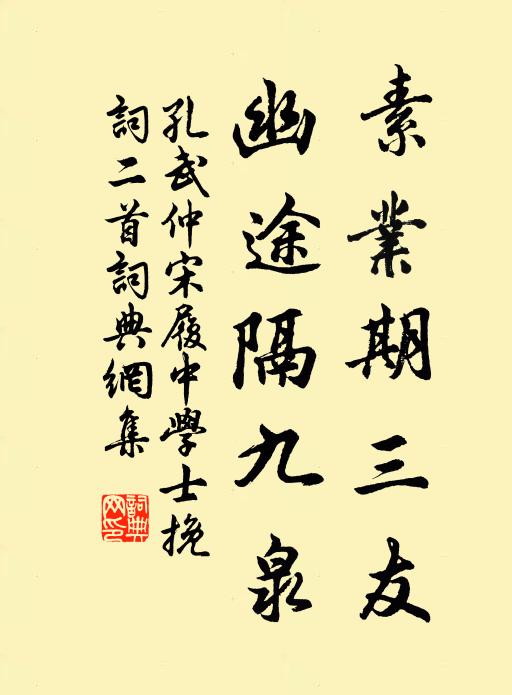 素業期三友
幽途隔九泉
孔武仲宋履中學士挽
詞二首詞典網集
詞典
网印